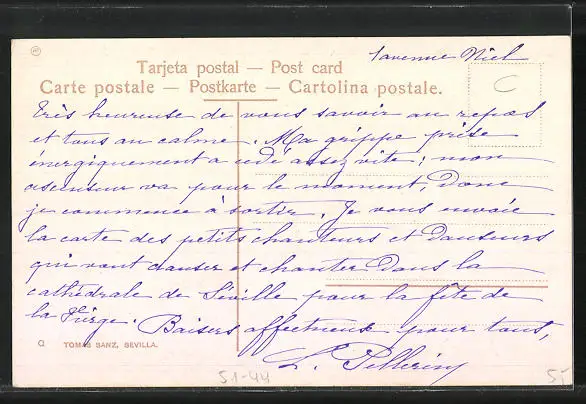 1 avenue Niel
Tarjeta postal — Post card
Carte postale — Postkarte — Cartolina postale.
C
Très heureuse de vous savoir au repos
et tous au calme. Ma grippe prise
énergiquement a cédé assez vite; mon
ascenseur va pour le moment, donc
je commence à sortir. Je vous envoie
la carte des petits chanteurs et danseurs
qui vont danser et chanter dans la
cathédrale de Séville pour la fête de
la Vierge. Baisers affectueux pour tous,
L. Pellerin
TOMAS SANZ, SEVILLA.
51-44